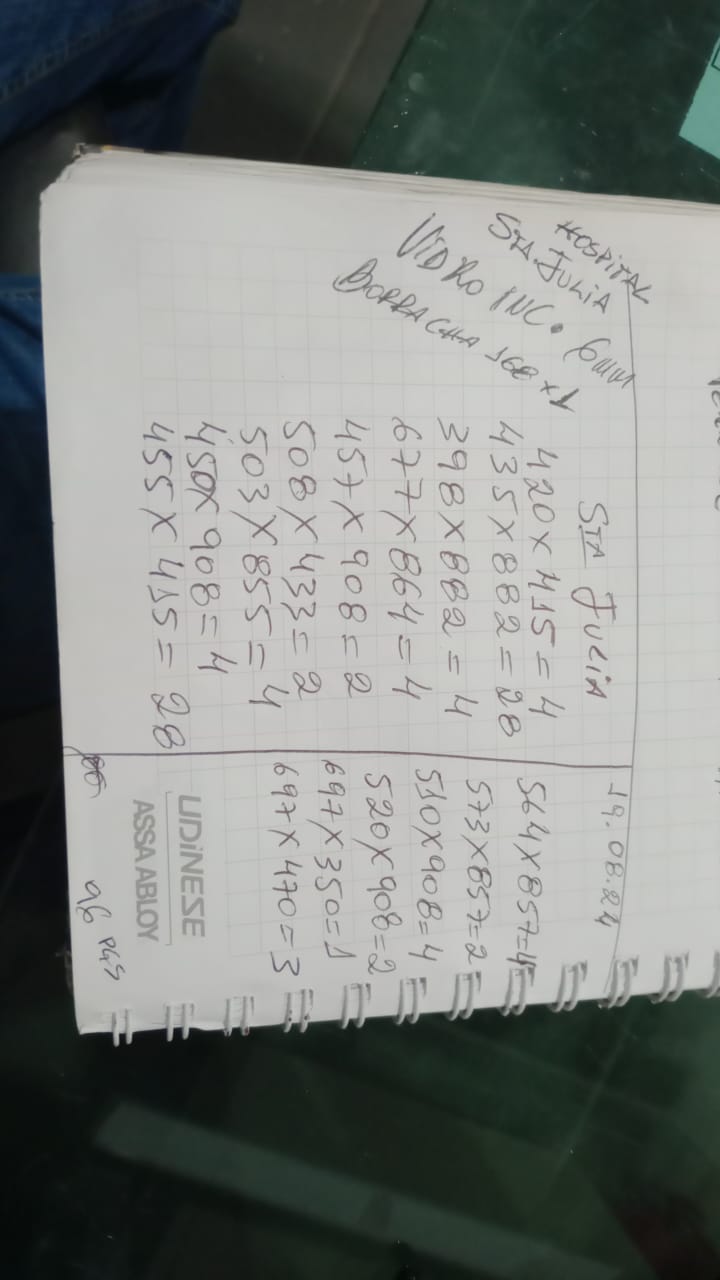 HOSPITAL
STA. JULIA
VIDRO INC. 6mm
BORRACHA 168 x 1
STA JULIA
19.08.24
420 x 415 = 4
435 x 882 = 28
398 x 882 = 4
677 x 864 = 4
457 x 908 = 2
508 x 433 = 2
503 x 855 = 4
450 x 908 = 4
455 x 415 = 28
564 x 857 = 4
573 x 857 = 2
510 x 908 = 4
520 x 908 = 2
697 x 350 = 1
697 x 470 = 3
UDINESE
ASSA ABLOY
96 PÇS